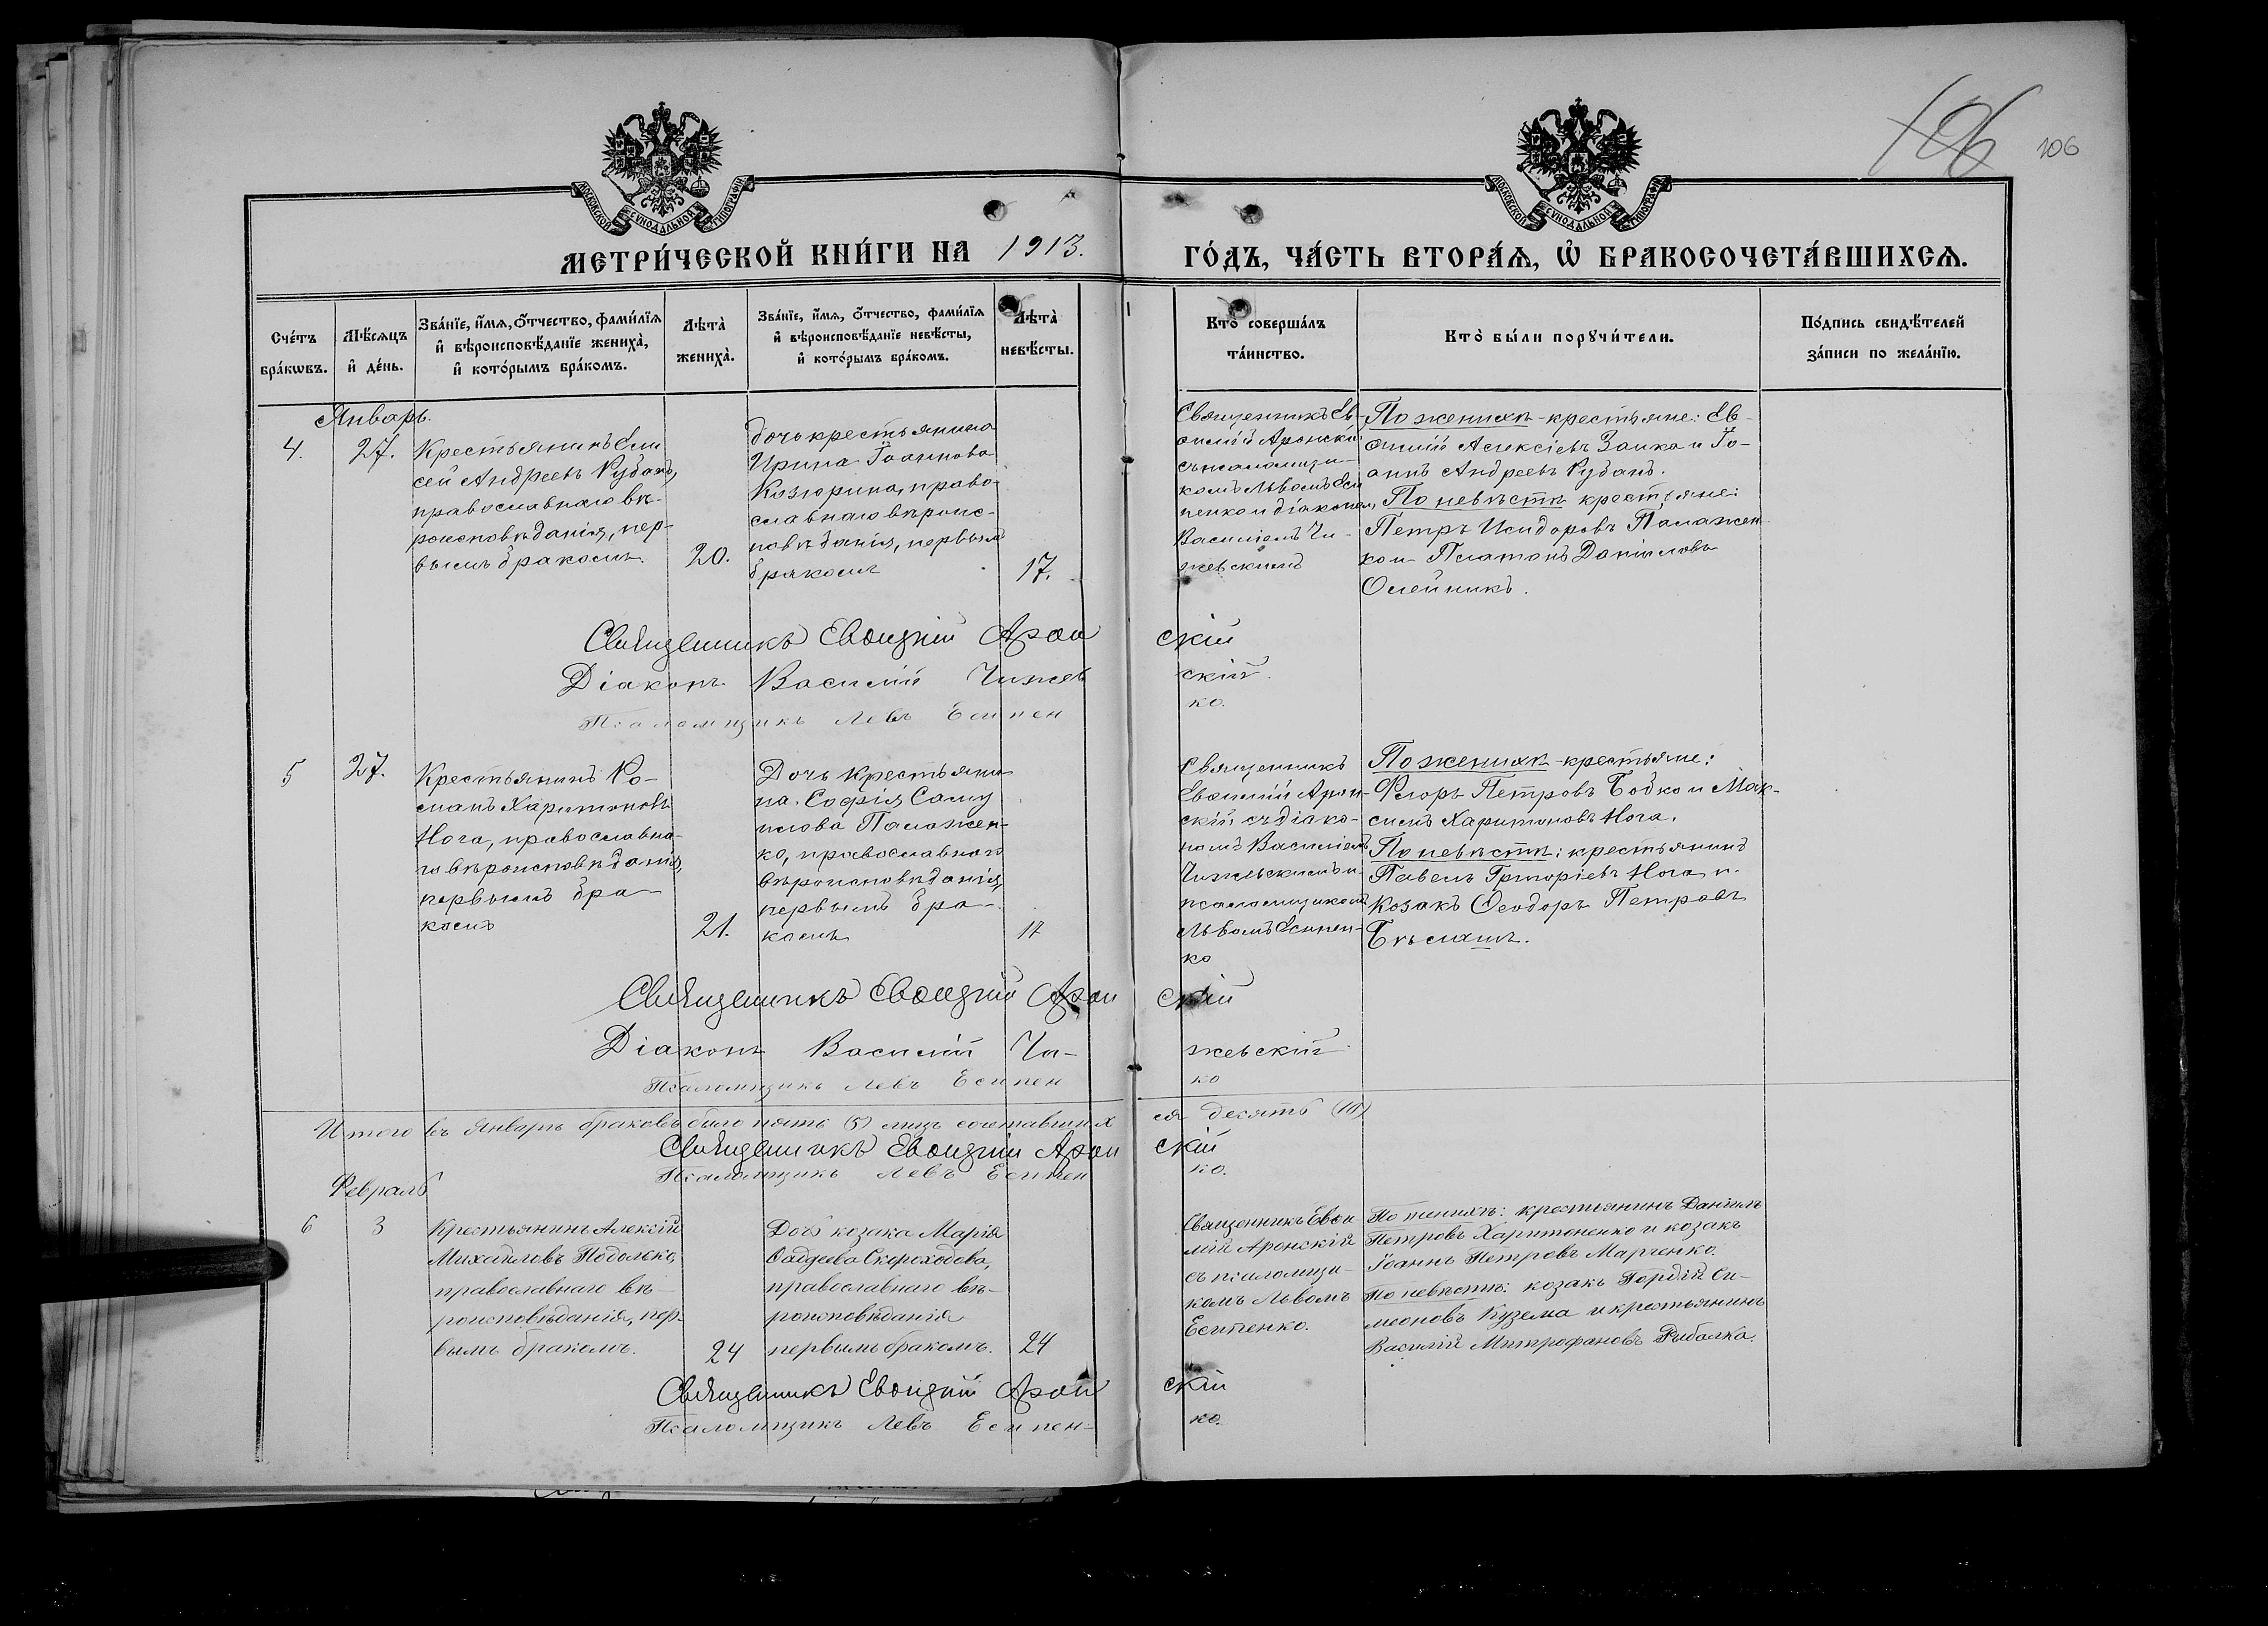 106 106
МОСКОВСКОЙ СѴНОДАЛЬНОЙ ТИПОГРАФІИ.
МОСКОВСКОЙ СѴНОДАЛЬНОЙ ТИПОГРАФІИ.
МЕТРИ́ЧЕСКОЙ КНИ́ГИ НА 1913. ГО́ДЪ, ЧА́СТЬ ВТОРА́Ѧ, Ѡ҆ БРАКОСОЧЕТА́ВШИХСѦ.
Сче́тъ
бра́кѡвъ.
Мѣ́сѧцъ
и҆ де́нь.
Зва́нїе, и҆́мѧ, ѻ҆́тчество, фами́лїѧ
и҆ вѣроисповѣ́данїе жениха̀,
и҆ кото́рымъ бра́комъ.
Лѣта̀
жениха̀.
Зва́нїе, и҆́мѧ, ѻ҆́тчество, фами́лїѧ
и҆ вѣроисповѣ́данїе невѣ́сты,
и҆ кото́рымъ бра́комъ.
Лѣта̀
невѣ́сты.
Кто̀ соверша́лъ
та́инство.
Кто̀ бы́ли порꙋчи́тели.
По́дпись свидѣ́телей
за́писи по жела́нїю.
Январь.
4.
27.
Крестьянинъ Ели
сей Андреевъ Рубанъ,
православнаго вѣ-
роисповѣданія, пер-
вымъ бракомъ.
20.
дочь крестьянина
Ирина Іоаннова
Козюрина, право-
славнаго вѣроис-
повѣданія, первымъ
бракомъ
17.
Священникъ Ев-
фимій Аронскій
съ псаломщи-
комъ Львомъ Еси
пенко и діакономъ
Василіемъ Чи-
жевскимъ
По женихѣ - крестьяне: Ев-
фимій Алексіевъ Заика и Іо-
аннъ Андреевъ Рубанъ.
По невѣстѣ крестьяне:
Петръ Исидоровъ Паламен
ко и Платонъ Даніиловъ
Олейникъ.
Священникъ Евфимій Аронскій
Діаконъ Василій Чижевскій.
Псаломщикъ Левъ Есипенко.
5
27.
Крестьянинъ Ро-
манъ Харитоновъ
Нога, православна-
го вѣроисповѣданія,
первымъ бра-
комъ
21.
Дочь крестьяни
на София Саму
илова Паламен-
ко, православнаго
вѣроисповѣданія,
первымъ бра-
комъ
17
Священникъ
Евфимій Арон-
скій съ діако-
номъ Василіемъ
Чижевскимъ и
псаломщикомъ
Львомъ Есипен-
ко
По женихѣ - крестьяне:
Флоръ Петровъ Бодко и Мак-
симъ Харитоновъ Нога.
По невѣстѣ: крестьянинъ
Павелъ Григоріевъ Нога и
козакъ Ѳеодоръ Петровъ
Священникъ Евфимій Аронскій
Діаконъ Василій Чи-жевскій
Псаломщикъ Левъ Есипенко
Итого въ Январѣ браковъ было пять (5) лицъ сочетавшихся десять (10)
Священникъ Евфимій Аронскій
Псаломщикъ Левъ Есипенко.
Февраль
6
3
Крестьянинъ Алексій
Михаиловъ Подолько,
православнаго вѣ-
роисповѣданія, пер-
вымъ бракомъ.
24
Дочь козака Марія
Ѳаддеева Скороходова,
православнаго вѣ-
роисповѣданія
первымъ бракомъ.
24
Священникъ Евфи
мій Аронскій
съ псаломщи-
комъ Львомъ
Есипенко.
По женихѣ: крестьянинъ Даніилъ
Петровъ Харитоненко и козакъ
Іоаннъ Петровъ Марченко.
По невѣстѣ: козакъ Гордій Си-
меоновъ Кузема и крестьянинъ
Василій Митрофановъ Рыбалка.
Священникъ Евфимій Аронскій
Псаломщикъ Левъ Есипен-ко.